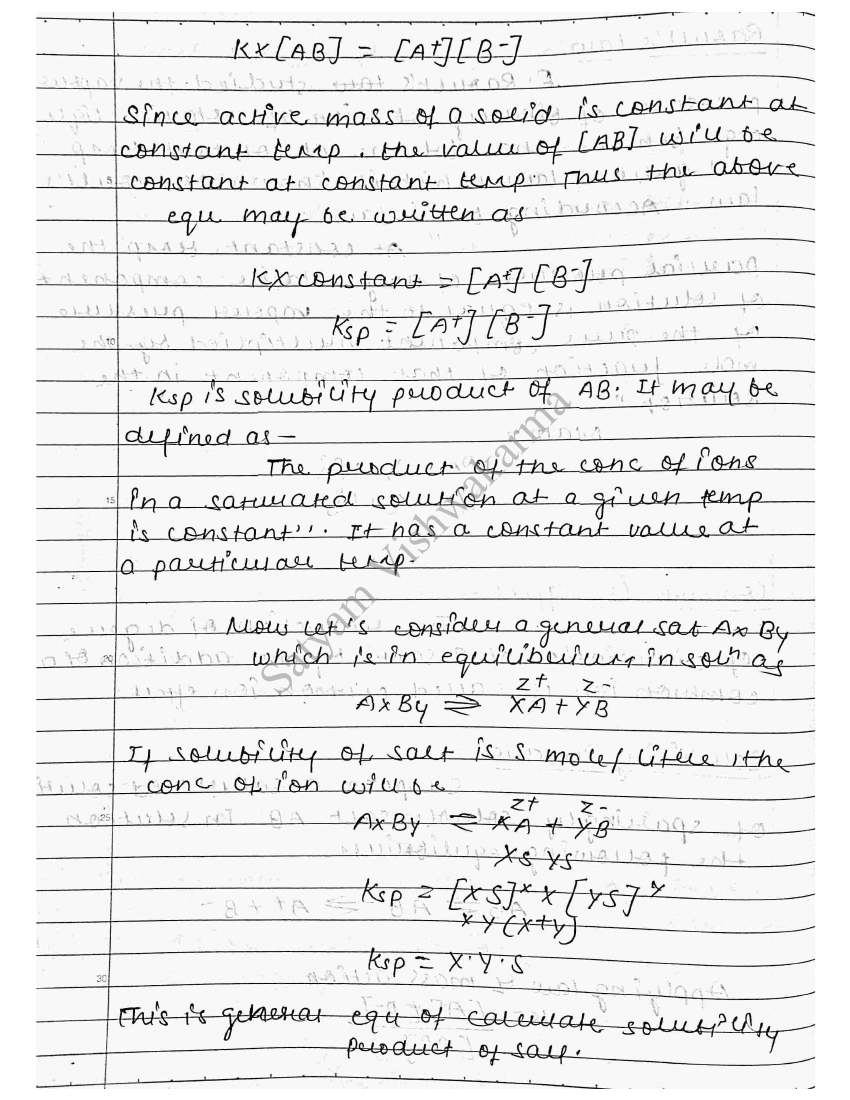 K×[AB] = [A+][B-]
Since active mass of a solid is constant at
constant temp. the value of [AB] will be
constant at constant temp. Thus the above
equ may be written as
K× constant = [A+] [B-]
Ksp = [A+] [B-]
10
Ksp is solubility product of AB. It may be
defined as –
The product of the conc of ions
15
in a saturated solution at a given temp
is constant". It has a constant value at
a particular temp.
Now let's consider a general sat AxBy
20
which is in equilibrium in solⁿ as
z+ z-
AxBy ⇌ XA + YB
If solubility of salt is s mole/litere, the
conc of ion will be
z+ z-
25
AxBy ⇌ XA + YB
XS YS
Ksp = [XS]ˣ × [YS]ʸ
x y (x+y)
Ksp = X·Y·S
30
This is general equ of calculate solubility
product of salt.
Satyam Vishwakarma